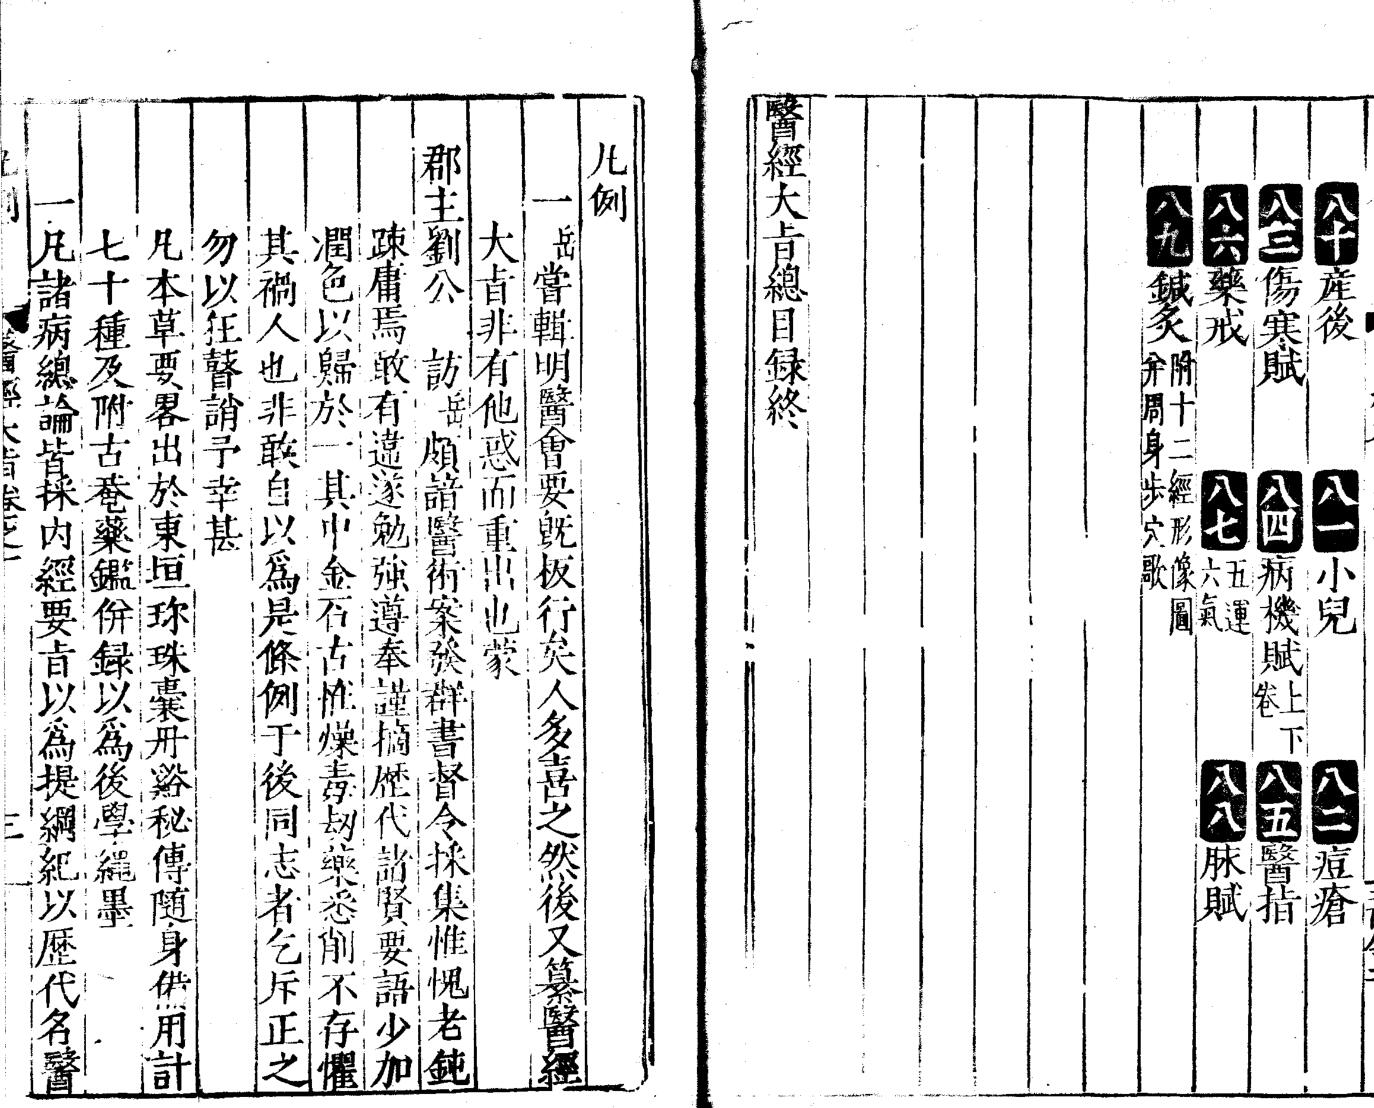 八十產後 八一小兒 八二痘瘡
八三傷寒賦 八四病機賦上下卷 八五醫指
八六藥戒 八七五運六氣 八八脉賦
八九鍼灸附十二經形像圖并周身步穴歌
醫經大㫖總目録終
凡例
一岳嘗輯明醫會要旣板行矣人多喜之然後又纂醫經
大㫖非有他惑而重出也蒙
郡主劉公 訪岳頗諳醫術案發群書督令採集惟愧老鈍
踈庸焉敢有違遂勉強遵奉謹摘歷代諸賢要語少加
潤色以歸於一其中金石古惟燥毒刼藥悉削不存懼
其禍人也非敢自以爲是條例于後同志者乞斥正之
勿以狂瞽誚予幸甚
凡本草要畧出於東垣珎珠囊丹谿秘傳隨身備用計
七十種及附古菴藥鑑併録以爲後學繩墨
一凡諸病總論皆採内經要㫖以爲提綱紀以歷代名醫
凡例 醫經大㫖卷之一 三